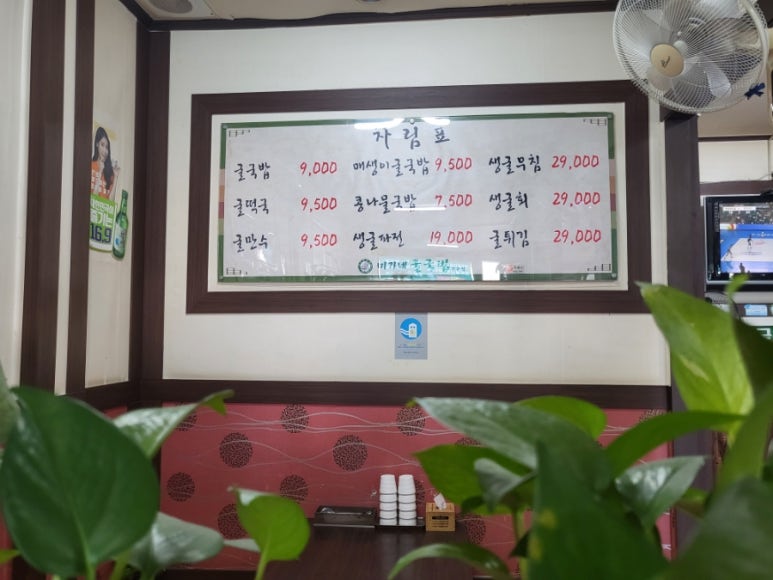 차림표
굴국밥 9,000 매생이굴국밥 9,500 생굴무침 29,000
굴떡국 9,500 콩나물국밥 7,500 생굴회 29,000
굴만수 9,500 생굴파전 19,000 굴튀김 29,000
16.9